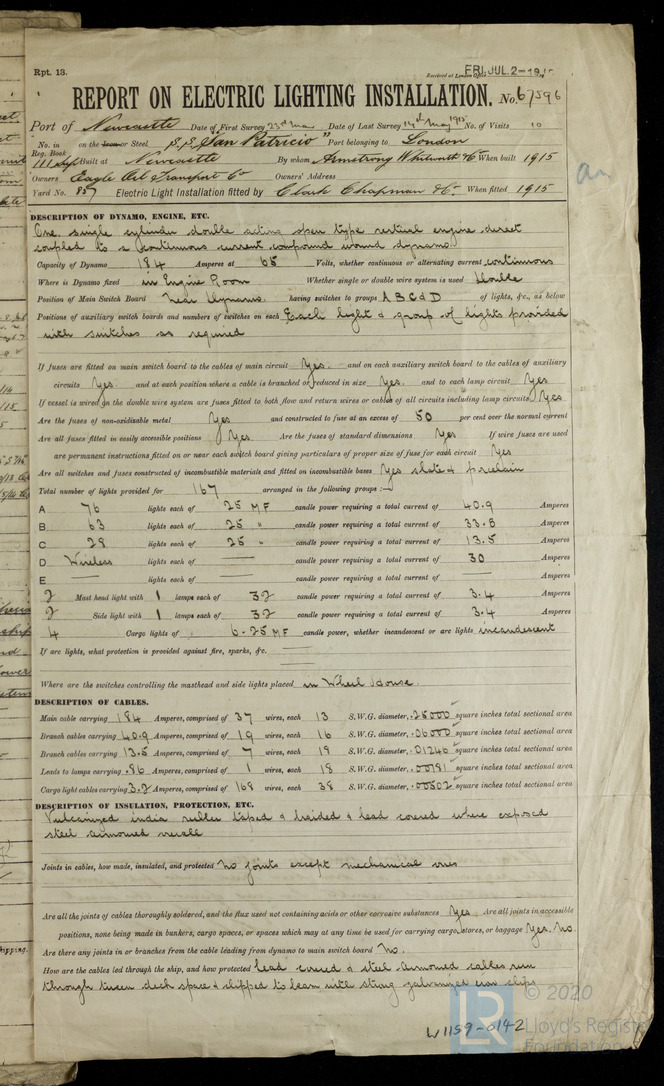 Rpt. 13.
Received at London Office FRI. JUL. 2-19
REPORT ON ELECTRIC LIGHTING INSTALLATION. No. 67596
Port of Newcastle Date of First Survey 23rd Mar Date of Last Survey 14th May 1915 No. of Visits 10
No. in Reg. Book 111 Sup on the Iron or Steel S.S. "San Patricio" Port belonging to London
Built at Newcastle By whom Armstrong Whitworth & Co When built 1915
Owners Eagle Oil Transport Co Owners' Address
Yard No. 887 Electric Light Installation fitted by Clark Chapman & Co. When fitted 1915
DESCRIPTION OF DYNAMO, ENGINE, ETC.
One single cylinder double acting open type vertical engine direct
coupled to a continuous current compound wound dynamo.
Capacity of Dynamo 184 Amperes at 65 Volts, whether continuous or alternating current continuous
Where is Dynamo fixed in Engine Room Whether single or double wire system is used double
Position of Main Switch Board near Dynamo. having switches to groups A B C & D of lights, &c., as below
Positions of auxiliary switch boards and numbers of switches on each Each light & group of lights provided
with switches as required
If fuses are fitted on main switch board to the cables of main circuit Yes. and on each auxiliary switch board to the cables of auxiliary
circuits Yes. and at each position where a cable is branched or reduced in size Yes. and to each lamp circuit Yes
If vessel is wired on the double wire system are fuses fitted to both flow and return wires or cables of all circuits including lamp circuits Yes
Are the fuses of non-oxidisable metal Yes and constructed to fuse at an excess of 50 per cent over the normal current
Are all fuses fitted in easily accessible positions Yes. Are the fuses of standard dimensions Yes If wire fuses are used
are permanent instructions fitted on or near each switch board giving particulars of proper size of fuse for each circuit Yes
Are all switches and fuses constructed of incombustible materials and fitted on incombustible bases Yes slate & porcelain
Total number of lights provided for 167 arranged in the following groups :—
A 76 lights each of 25 MF candle power requiring a total current of 40.9 Amperes
B 63 lights each of 25 " candle power requiring a total current of 33.8 Amperes
C 28 lights each of 25 " candle power requiring a total current of 13.5 Amperes
D Wireless lights each of — candle power requiring a total current of 30 Amperes
E — lights each of — candle power requiring a total current of — Amperes
2 Mast head light with 1 lamps each of 32 candle power requiring a total current of 3.4 Amperes
2 Side light with 1 lamps each of 32 candle power requiring a total current of 3.4 Amperes
4 Cargo lights of 6-25 MF candle power, whether incandescent or arc lights incandescent
If arc lights, what protection is provided against fire, sparks, &c.
Where are the switches controlling the masthead and side lights placed in Wheel House.
DESCRIPTION OF CABLES.
Main cable carrying 184 Amperes, comprised of 37 wires, each 13 S.W.G. diameter, .25000 square inches total sectional area
Branch cables carrying 40.9 Amperes, comprised of 19 wires, each 16 S.W.G. diameter, .06000 square inches total sectional area
Branch cables carrying 13.5 Amperes, comprised of 7 wires, each 18 S.W.G. diameter, .01246 square inches total sectional area
Leads to lamps carrying .86 Amperes, comprised of 1 wires, each 18 S.W.G. diameter, .00181 square inches total sectional area
Cargo light cables carrying 3.2 Amperes, comprised of 168 wires, each 38 S.W.G. diameter, .00502 square inches total sectional area
DESCRIPTION OF INSULATION, PROTECTION, ETC.
Vulcanized india rubber taped & braided & lead covered where exposed
steel armoured
Joints in cables, how made, insulated, and protected no joints except mechanical ones
Are all the joints of cables thoroughly soldered, and the flux used not containing acids or other corrosive substances Yes Are all joints in accessible
positions, none being made in bunkers, cargo spaces, or spaces which may at any time be used for carrying cargo, stores, or baggage Yes. No.
Are there any joints in or branches from the cable leading from dynamo to main switch board No.
How are the cables led through the ship, and how protected lead covered & steel armoured cables run
through tween deck space & clipped to beam with strong galvanized iron clips
W1159-0142
LR
© 2020
Lloyd's Register
Foundation